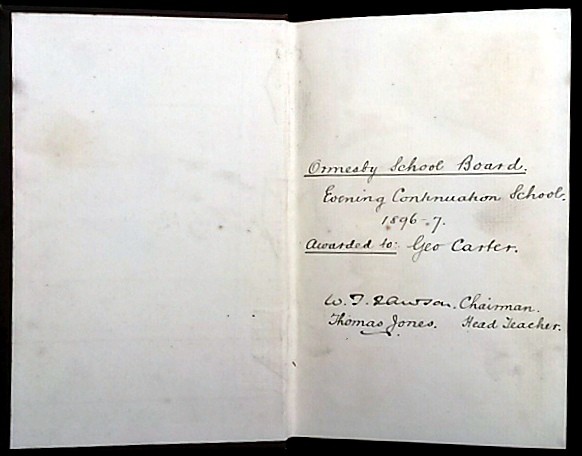 Ormesby School Board.
Evening Continuation School.
1896-7.
Awarded to: Geo Carter.
W. T. Lawson. Chairman.
Thomas Jones. Head Teacher.